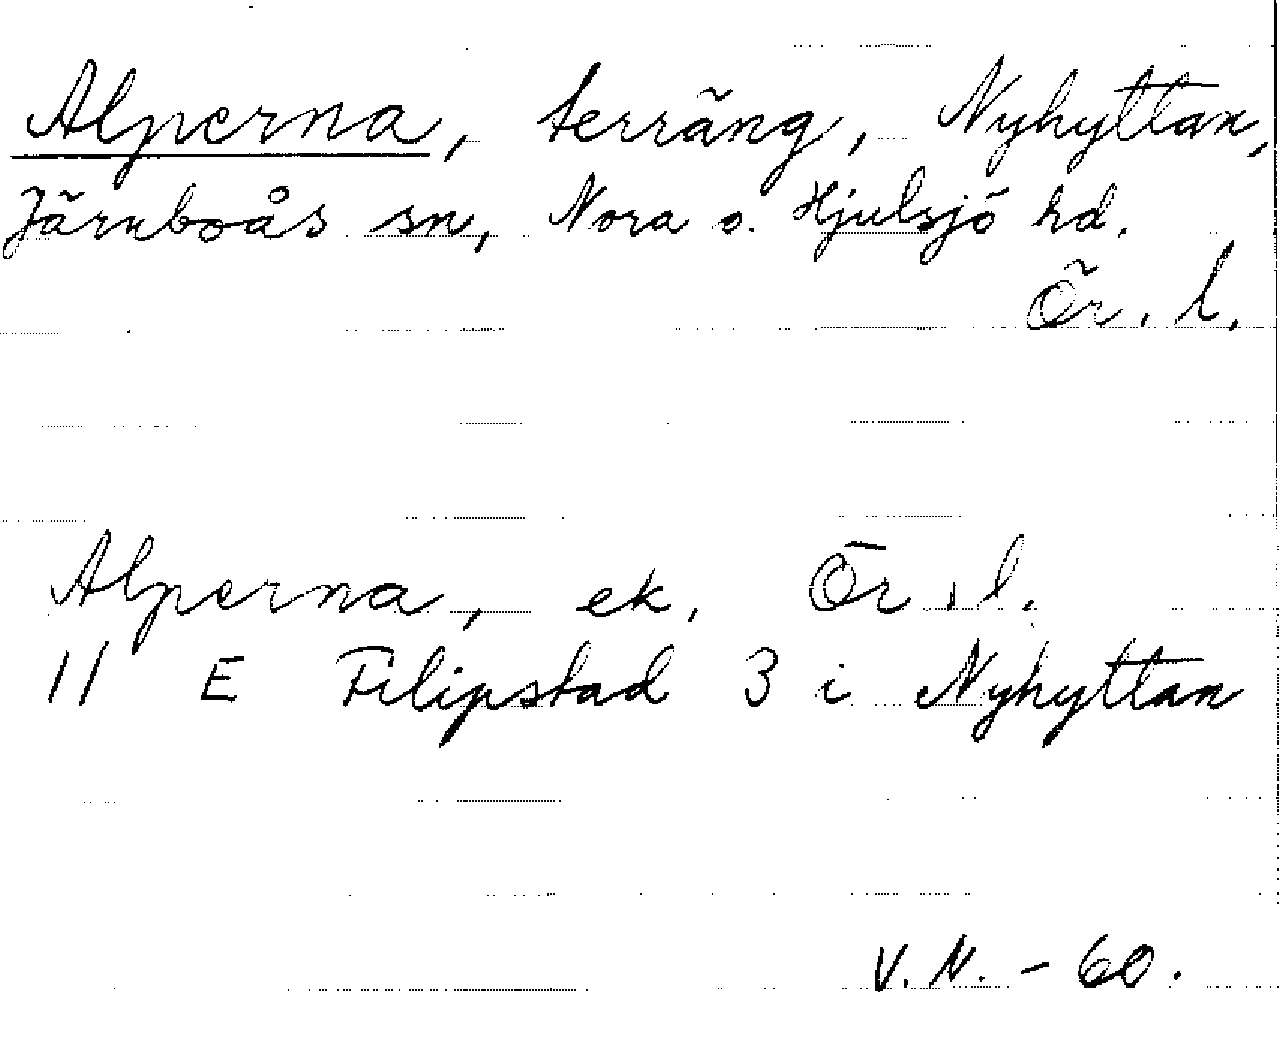 Alperna, terräng, Nyhyttan,
Järnboås sn, Nora o. Hjulsjö hd.
Ör. l.
Alperna, ek. Ör. l.
11 E Filipstad 3 i Nyhyttan
V. N. - 60.